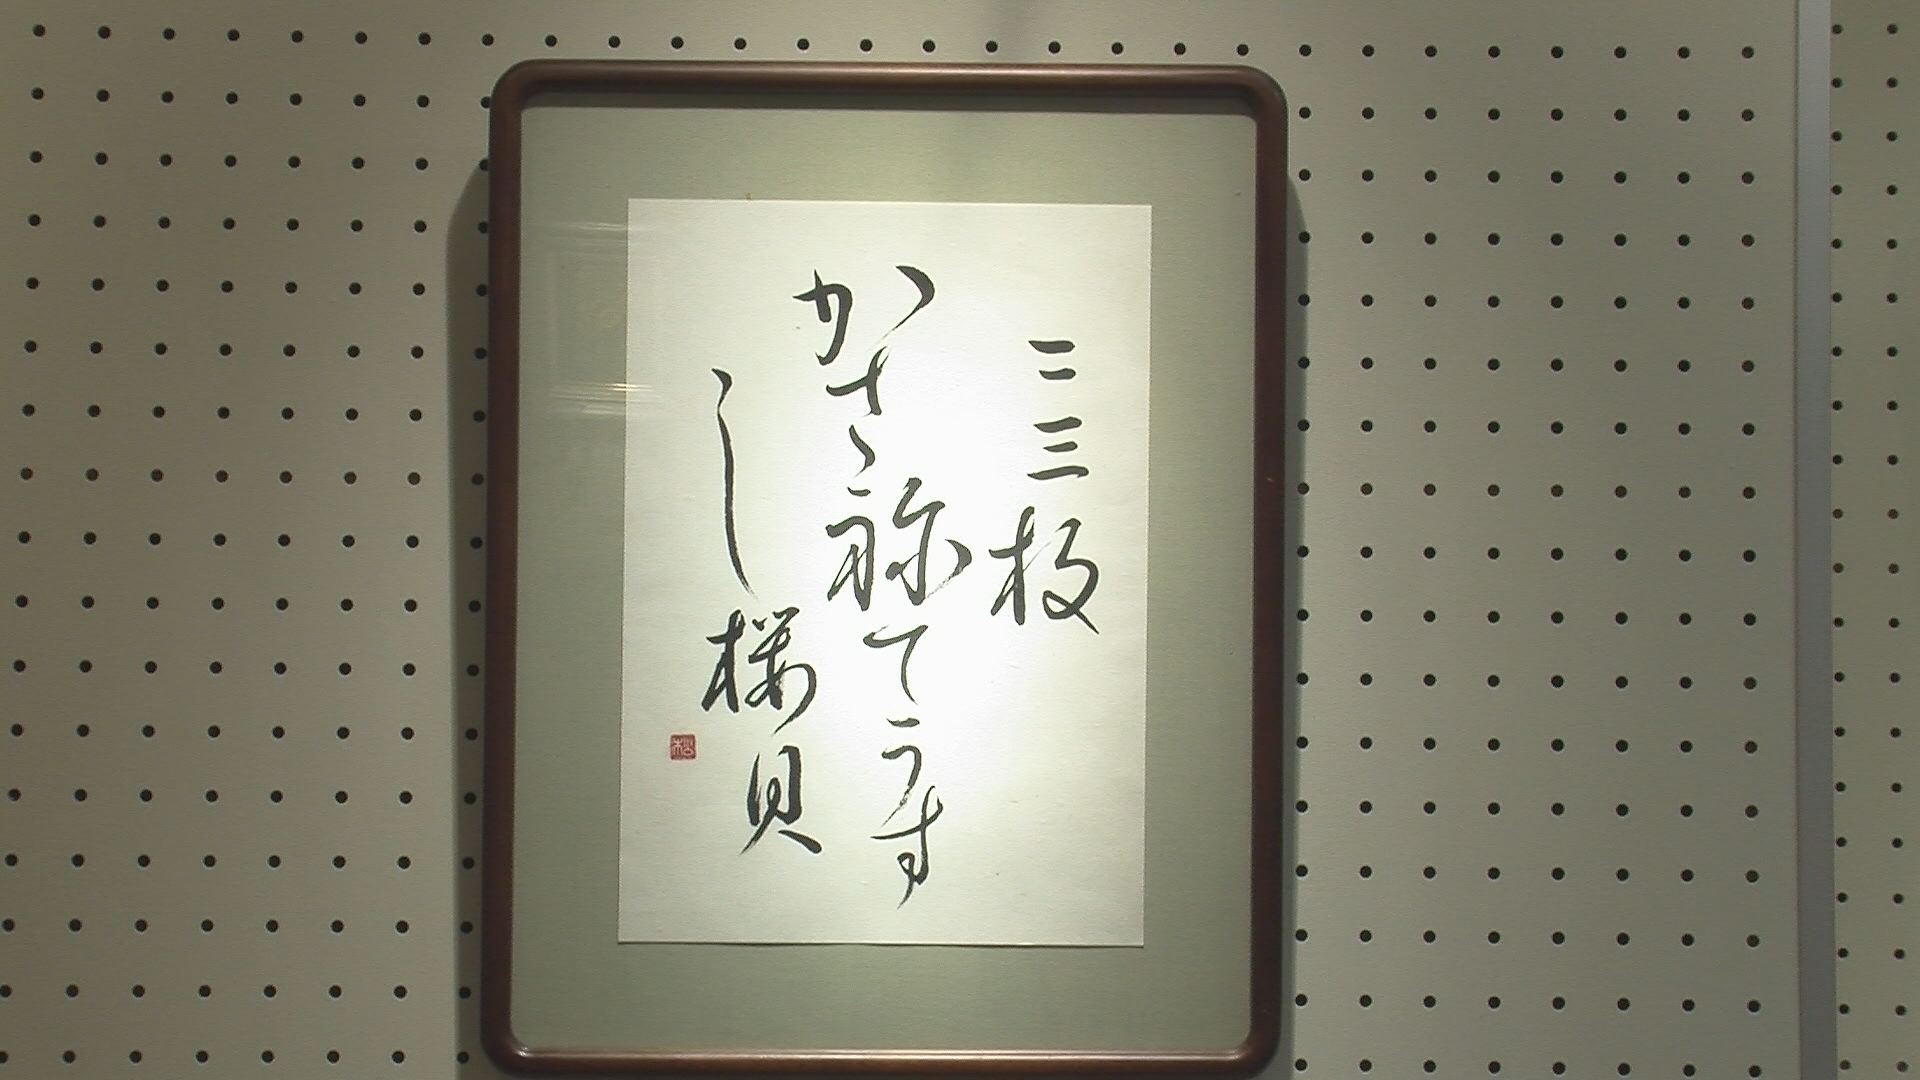 二三枚
かさ祢てうす
し桜貝
松